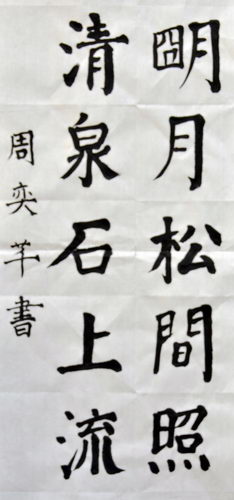 朙月松間照
清泉石上流
周奕芊書